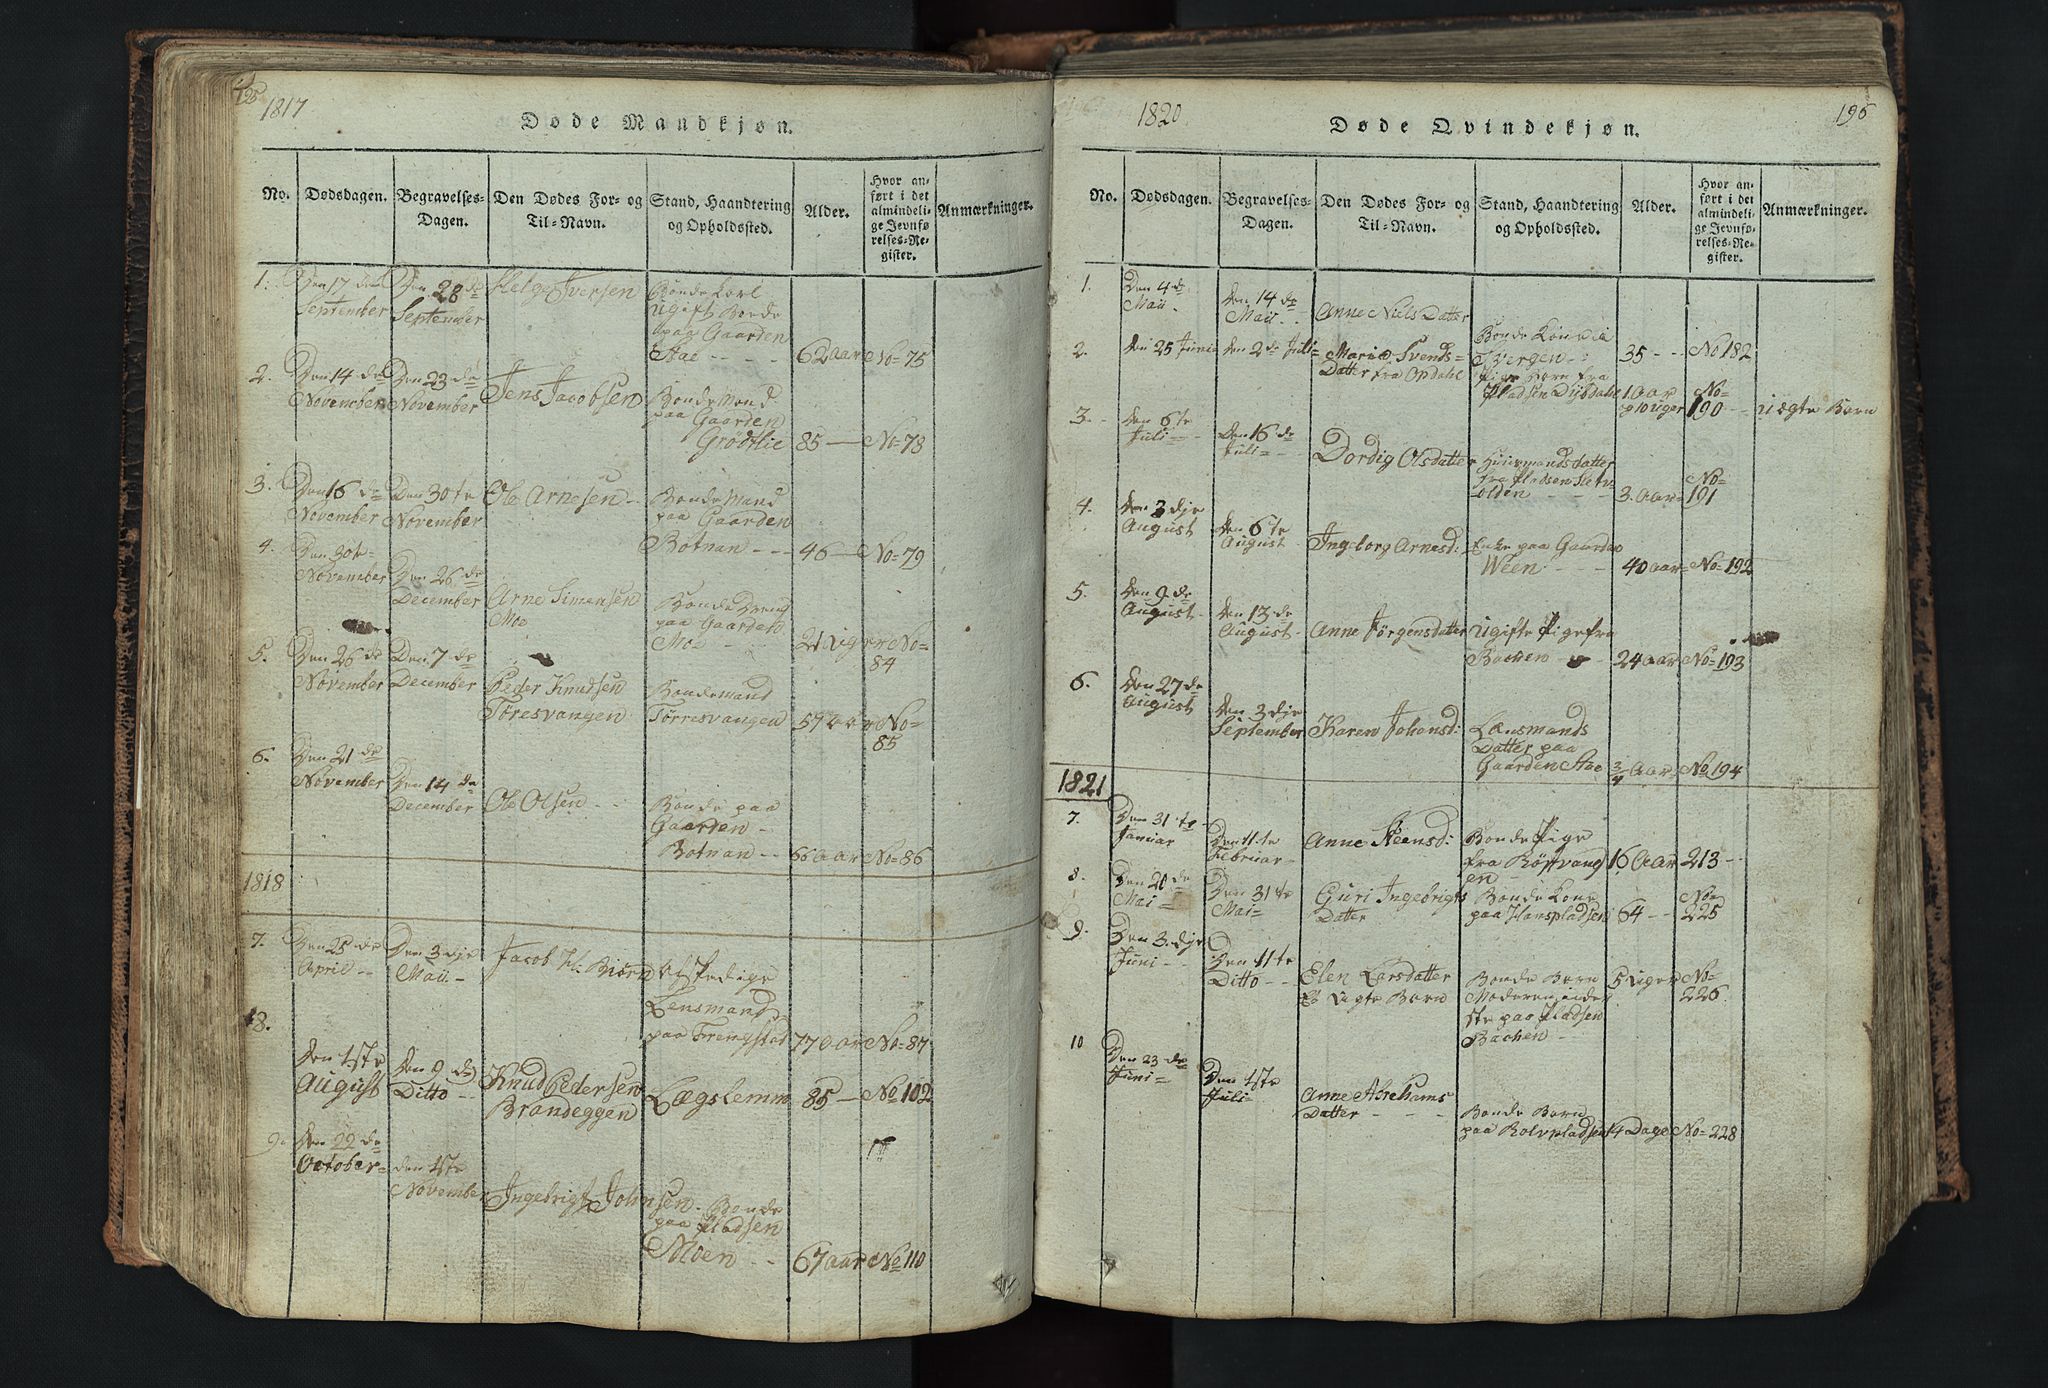 1817
Døde Mandkjøn.
No.
Dødsdagen.
Begravelses-
Dagen.
Den Dødes For- og
Til-Navn.
Stand, Haandtering
og Opholdssted.
Alder.
Hvor an-
ført i det
almindeli-
ge Jevnfø-
relses-Re-
gister.
Anmærkninger.
1.
Den 17 de
September
Den 28 de
September
Helge Iversen
Bonde Karl
Ugift Bonde
paa Gaarden
Aae - - -
62 aar
No= 75
2.
Den 14 de
November
Den 23 de
November
Jens Jacobsen
Bonde Mand
paa
Gaarden
Grödtlie
85 —
No= 78
3.
Den 16 de
November
Den 30 te
November
Ole Arnesen -
Bonde Mand
paa Gaarden
Botnan - - -
46 —
No= 79
4.
Den 30 te
November
Den 26 de
December
Arne Simensen
Moe
Bonde Dreng
paa Gaarden
Moe - -
21 Uger
No=
84
5.
Den 26 de
November
Den 7 de
December
Peder Knudsen
Töresvangen
Bondemand
Törresvangen
57 aar
No=
85
6.
Den 21 de
November
Den 14 de
December
Ole Olsen - -
Bonde paa
Gaarden -
Botnan - -
66 aar
No= 86
1818
7.
Den 25 de
April -
Den 3 dje
Maii -
Jacob H: Biörn
Afstedige
Lensmand
paa
77 aar
No= 87
8.
Den 1ste
August
Den 9 de
Ditto -
Knud Pedersen
Brandeggen
Lægslemm
85 —
No 102
9.
Den 22 de
October
den 1ste
November
Ingebrigt Johnsen
Bonde
paa Pladsen
Moen - -
67 aar
No 110
1820
196
Døde Qvindekjøn.
No.
Dødsdagen.
Begravelses-
Dagen.
Den Dødes For- og
Til-Navn.
Stand, Haandtering
og Opholdssted.
Alder.
Hvor an-
ført i det
almindeli-
ge Jevnfø-
relses-Re-
gister.
Anmærkninger.
1.
Den 4 de
Maii -
Den 14 de
Maii - -
Anne Niels Datter
Bonde Kone
35 - -
No 182
2.
Den 25 Juni
Den 2 de Juli
Marie Svends-
Datter fra Opdahl
Pige Barn fra
Pladsen
1 Aar
10 uger
No=
190 -
Uægte Barn
3.
Den 6 te
Juli -
Den 16 de
Juli -
Dordig Olsdatter
Huusmandsdatter
fra Pladsen Sletv-
olden - - -
3 Aar
No=
191
4.
Den 3 dje
August
Den 6 te
August
Ingeborg Arnesd:
Enke paa Gaarden
Wéen - - -
40 aar
No= 192
5.
Den 9 de
August
Den 13 de
August
Anne Jörgensdatter
Ugifte Pige fra
Bachen - -
24 aar
No= 193
6.
Den 27 de
August
Den 3 dje
September
Karen Johansd:
Lænsmands
Datter paa
Gaarden Aae
3/4 Aar
No 194
1821
7.
Den 31 te
Januar
Den 11 te
Februar
Anne Steensd:
Bonde Pige
fra Röstvang
en
16 Aar
213 -
8.
Den 20 de
Mai -
Den 31 te
Mai =
Guri Ingebrigts
Datter
Bonde Kone
paa Hanspladsen
64 - -
No=
225
9.
Den 3. dje
Juni - -
Den 11 te
Ditto - -
Elen Larsdatter
Et Ugte Barn
Bonde Barn
Moderen
paa Pladsen
Bachen -
5 Uger
No=
226
10
Den 23 de
Juni =
Den 1ste
Juli =
Anne Abrehams
Datter - - -
Bonde Barn
paa Rolvpladsen
14 Dage
No= 228